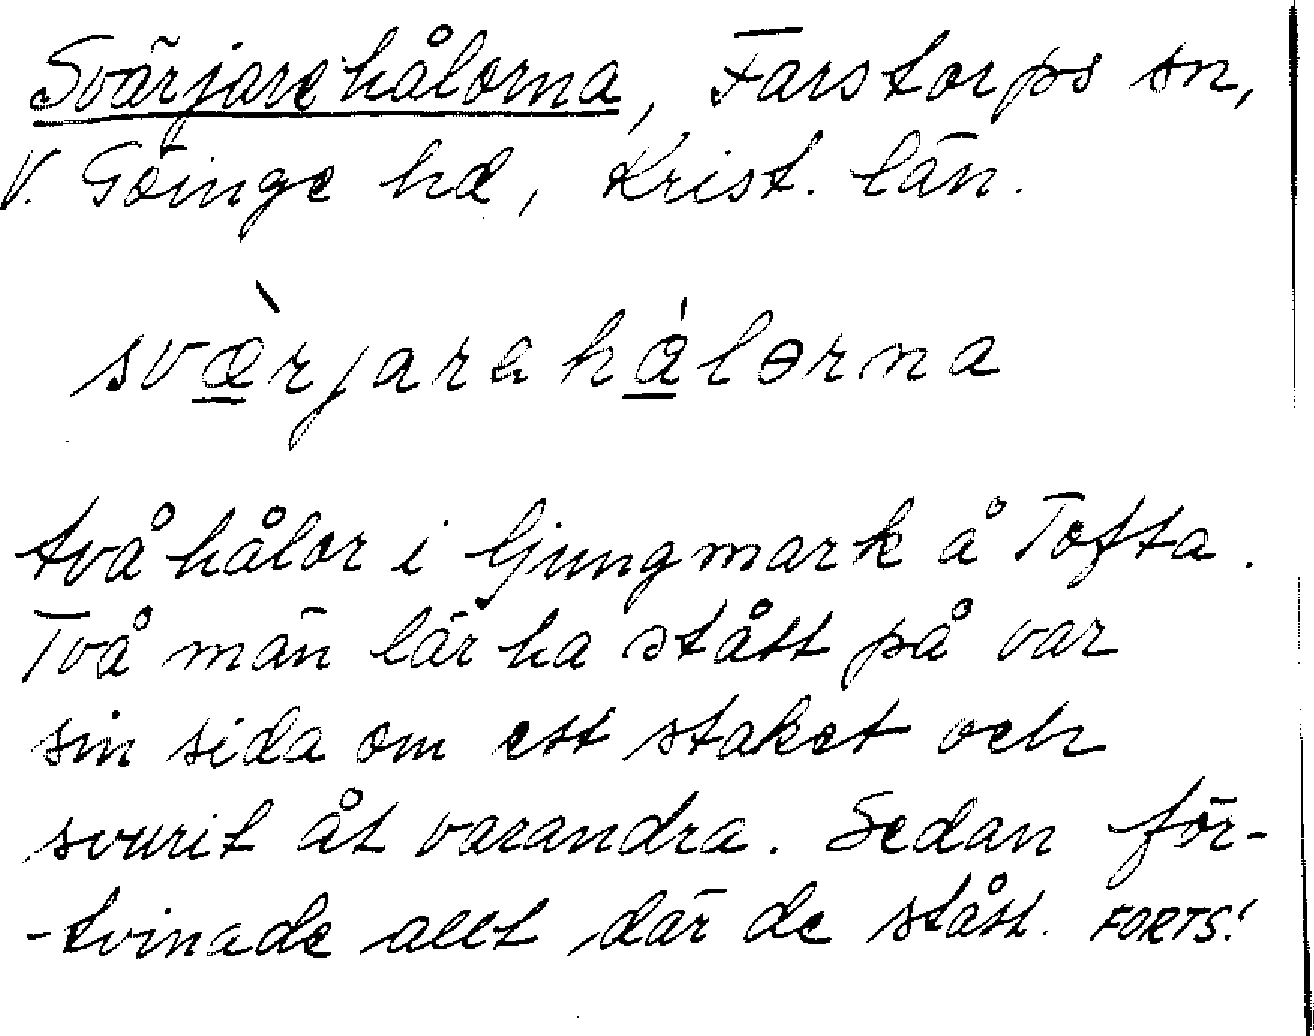 Svärjarehålorna, Farstorps sn,
V. Göinge hd, Krist. län.
svæ̀rjarəhålərna
två hålor i ljungmark å Tofta.
Två män lär ha stått på var
sin sida om ett staket och
svurit åt varandra. Sedan för-
-tvinade allt där de stått. FORTS!